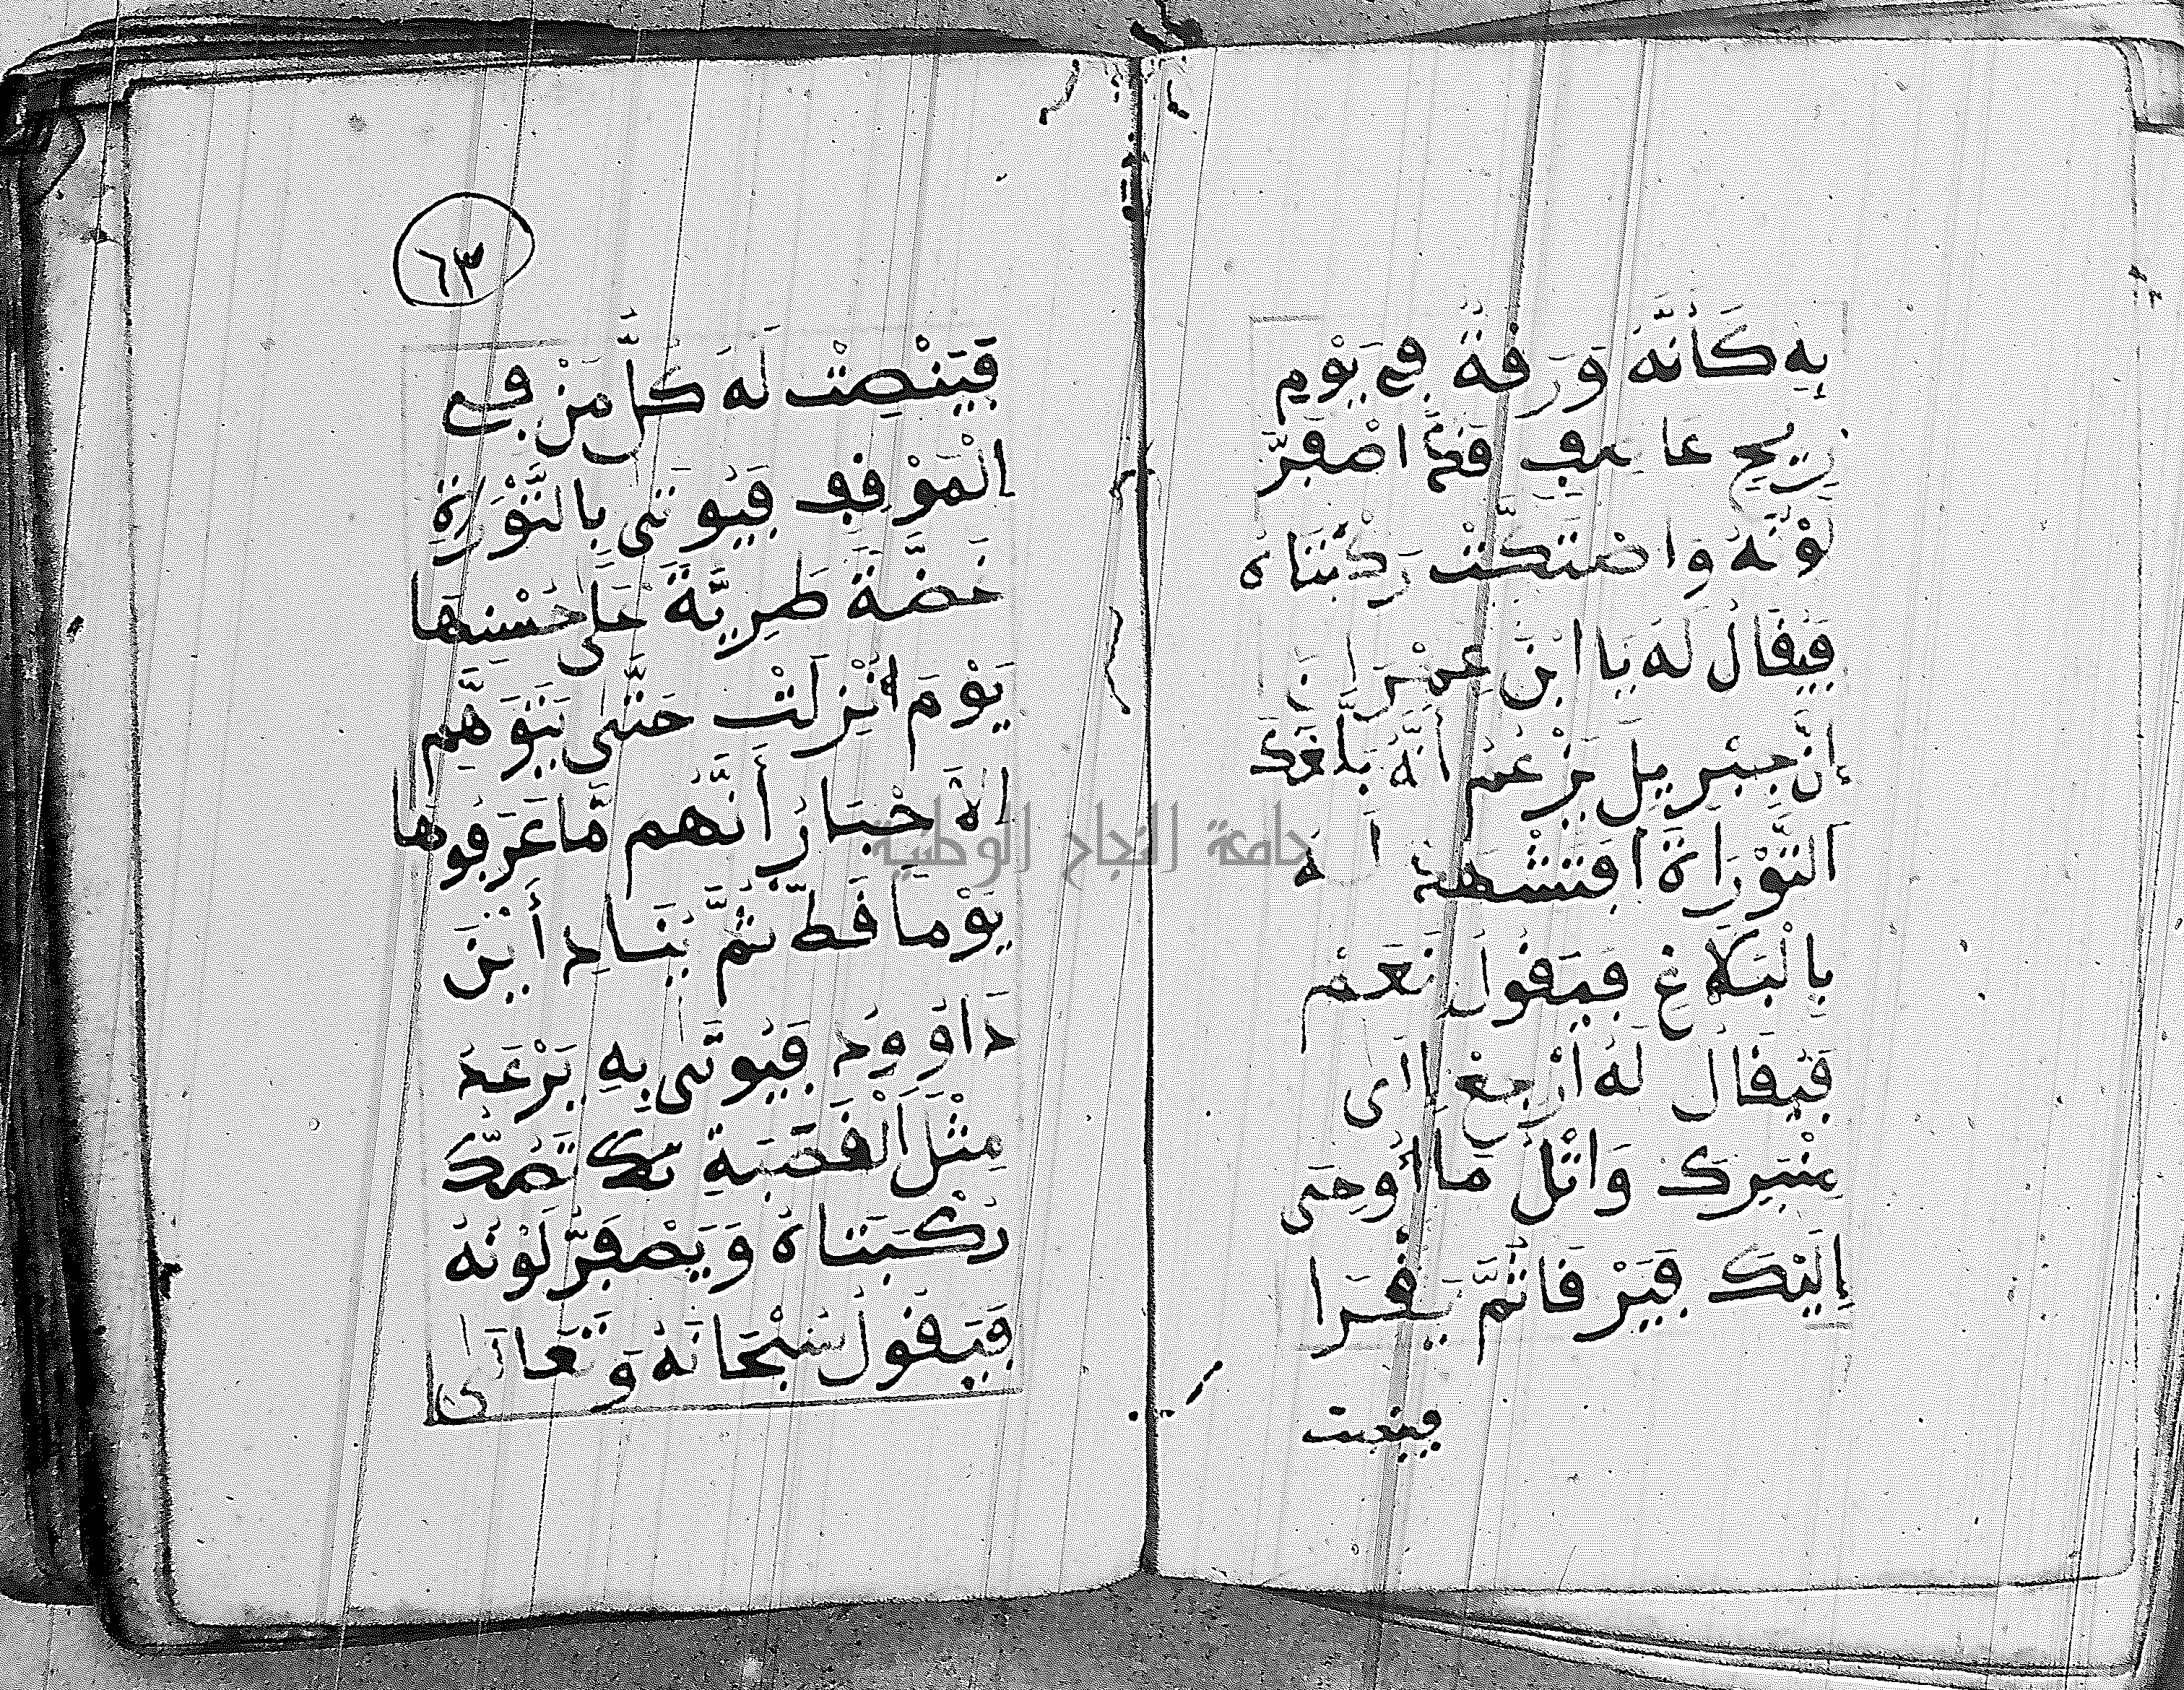 بِهِ كَأَنَّهُ وَرَقَةٌ فِي يَوْمِ
رِيحٍ عَاصِفٍ قَدِ اصْفَرَّ
لَوْنُهُ وَاصْتَكَّتْ رَكْبَتَاهُ
فَيُقَالُ لَهُ يَا ابْنَ عِمْرَانَ
إِنَّ جِبْرِيلَ يَزْعُمُ أَنَّهُ بَلَّغَكَ
التَّوْرَاةَ أَفَتَشْهَدُ لَهُ
بِالْبَلَاغِ فَيَقُولُ نَعَمْ
فَيُقَالُ لَهُ ارْجِعْ إِلَى
مِنْبَرِكَ وَاتْلُ مَا أُوحِيَ
إِلَيْكَ فَيَرْقَا ثُمَّ يَقْرَا
فينصت
٦٣
فَيَنْصِتُ لَهُ كُلُّ مَنْ فِي
الْمَوْقِفِ فَيُوتَى بِالتَّوْرَاةِ
غَضَّةً طَرِيَّةً عَلَى حُسْنِهَا
يَوْمَ أُنْزِلَتْ حَتَّى يَتَوَهَّمَ
الْأَحْبَارُ أَنَّهُمْ مَّا عَرَفُوهَا
يَوْمًا قَطُّ ثُمَّ يُنَادِ أَيْنَ
دَاوُودُ فَيُوتَى بِهِ يَرْعَدُ
مِثْلَ الْقَصَبَةِ تَصْتَكُّ
رُكْبَتَاهُ وَيَصْفَرُّ لَوْنُهُ
فَيَقُولُ سُبْحَانَهُ وَتَعَالَى
جامعة النجاح الوطنية